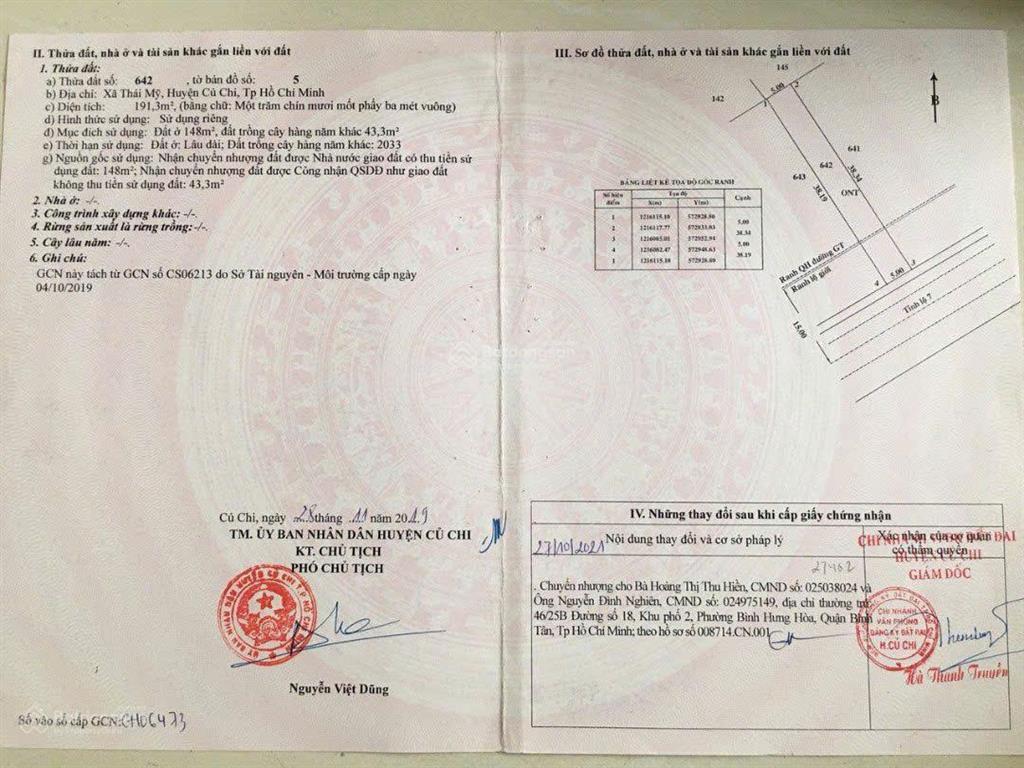 II. Thửa đất, nhà ở và tài sản khác gắn liền với đất
1. Thửa đất:
a) Thửa đất số: 642 , tờ bản đồ số: 5
b) Địa chỉ: Xã Thái Mỹ, Huyện Củ Chi, Tp Hồ Chí Minh
c) Diện tích: 191,3m², (bằng chữ: Một trăm chín mươi mốt phẩy ba mét vuông)
d) Hình thức sử dụng: Sử dụng riêng
đ) Mục đích sử dụng: Đất ở 148m², đất trồng cây hàng năm khác 43,3m²
e) Thời hạn sử dụng: Đất ở: Lâu dài; Đất trồng cây hàng năm khác: 2033
g) Nguồn gốc sử dụng: Nhận chuyển nhượng đất được Nhà nước giao đất có thu tiền sử
dụng đất: 148m²; Nhận chuyển nhượng đất được Công nhận QSDĐ như giao đất
không thu tiền sử dụng đất: 43,3m²
2. Nhà ở: -/-.
3. Công trình xây dựng khác: -/-.
4. Rừng sản xuất là rừng trồng: -/-.
5. Cây lâu năm: -/-.
6. Ghi chú:
GCN này tách từ GCN số CS06213 do Sở Tài nguyên - Môi trường cấp ngày
04/10/2019
Củ Chi, ngày 28 tháng 11 năm 2019
TM. ỦY BAN NHÂN DÂN HUYỆN CỦ CHI
KT. CHỦ TỊCH
PHÓ CHỦ TỊCH
Nguyễn Việt Dũng
Số vào sổ cấp GCN: CH06473
III. Sơ đồ thửa đất, nhà ở và tài sản khác gắn liền với đất
145
142
5.00
1
2
B
641
642
643
38.34
38.19
ONT
BẢNG LIỆT KÊ TỌA ĐỘ GÓC RANH
Số hiệu điểm Tọa độ Cạnh
X(m) Y(m)
1 1216115.10 572928.80
5.00
2 1216117.77
38.34
3 572952.94
5.00
4 572948.63
38.19
1 1216115.10 572928.80
Ranh QH đường GT
Ranh lộ giới
4
5.00
3
Tỉnh lộ 7
15.00
IV. Những thay đổi sau khi cấp giấy chứng nhận
27/10/2021
Nội dung thay đổi và cơ sở pháp lý
Xác nhận của cơ quan
có thẩm quyền
HUYỆN CỦ CHI
GIÁM ĐỐC
Chuyển nhượng cho Bà Hoàng Thị Thu Hiền, CMND số: 025038024 và
Ông Nguyễn Đình Nghiên, CMND số: 024975149, địa chỉ thường trú:
46/25B Đường số 18, Khu phố 2, Phường Bình Hưng Hòa, Quận Bình
Tân, Tp Hồ Chí Minh; theo hồ sơ số 008714.CN.001
CHI NHÁNH
VĂN PHÒNG
ĐĂNG KÝ ĐẤT ĐAI
H.CỦ CHI
Hà Thanh Truyền